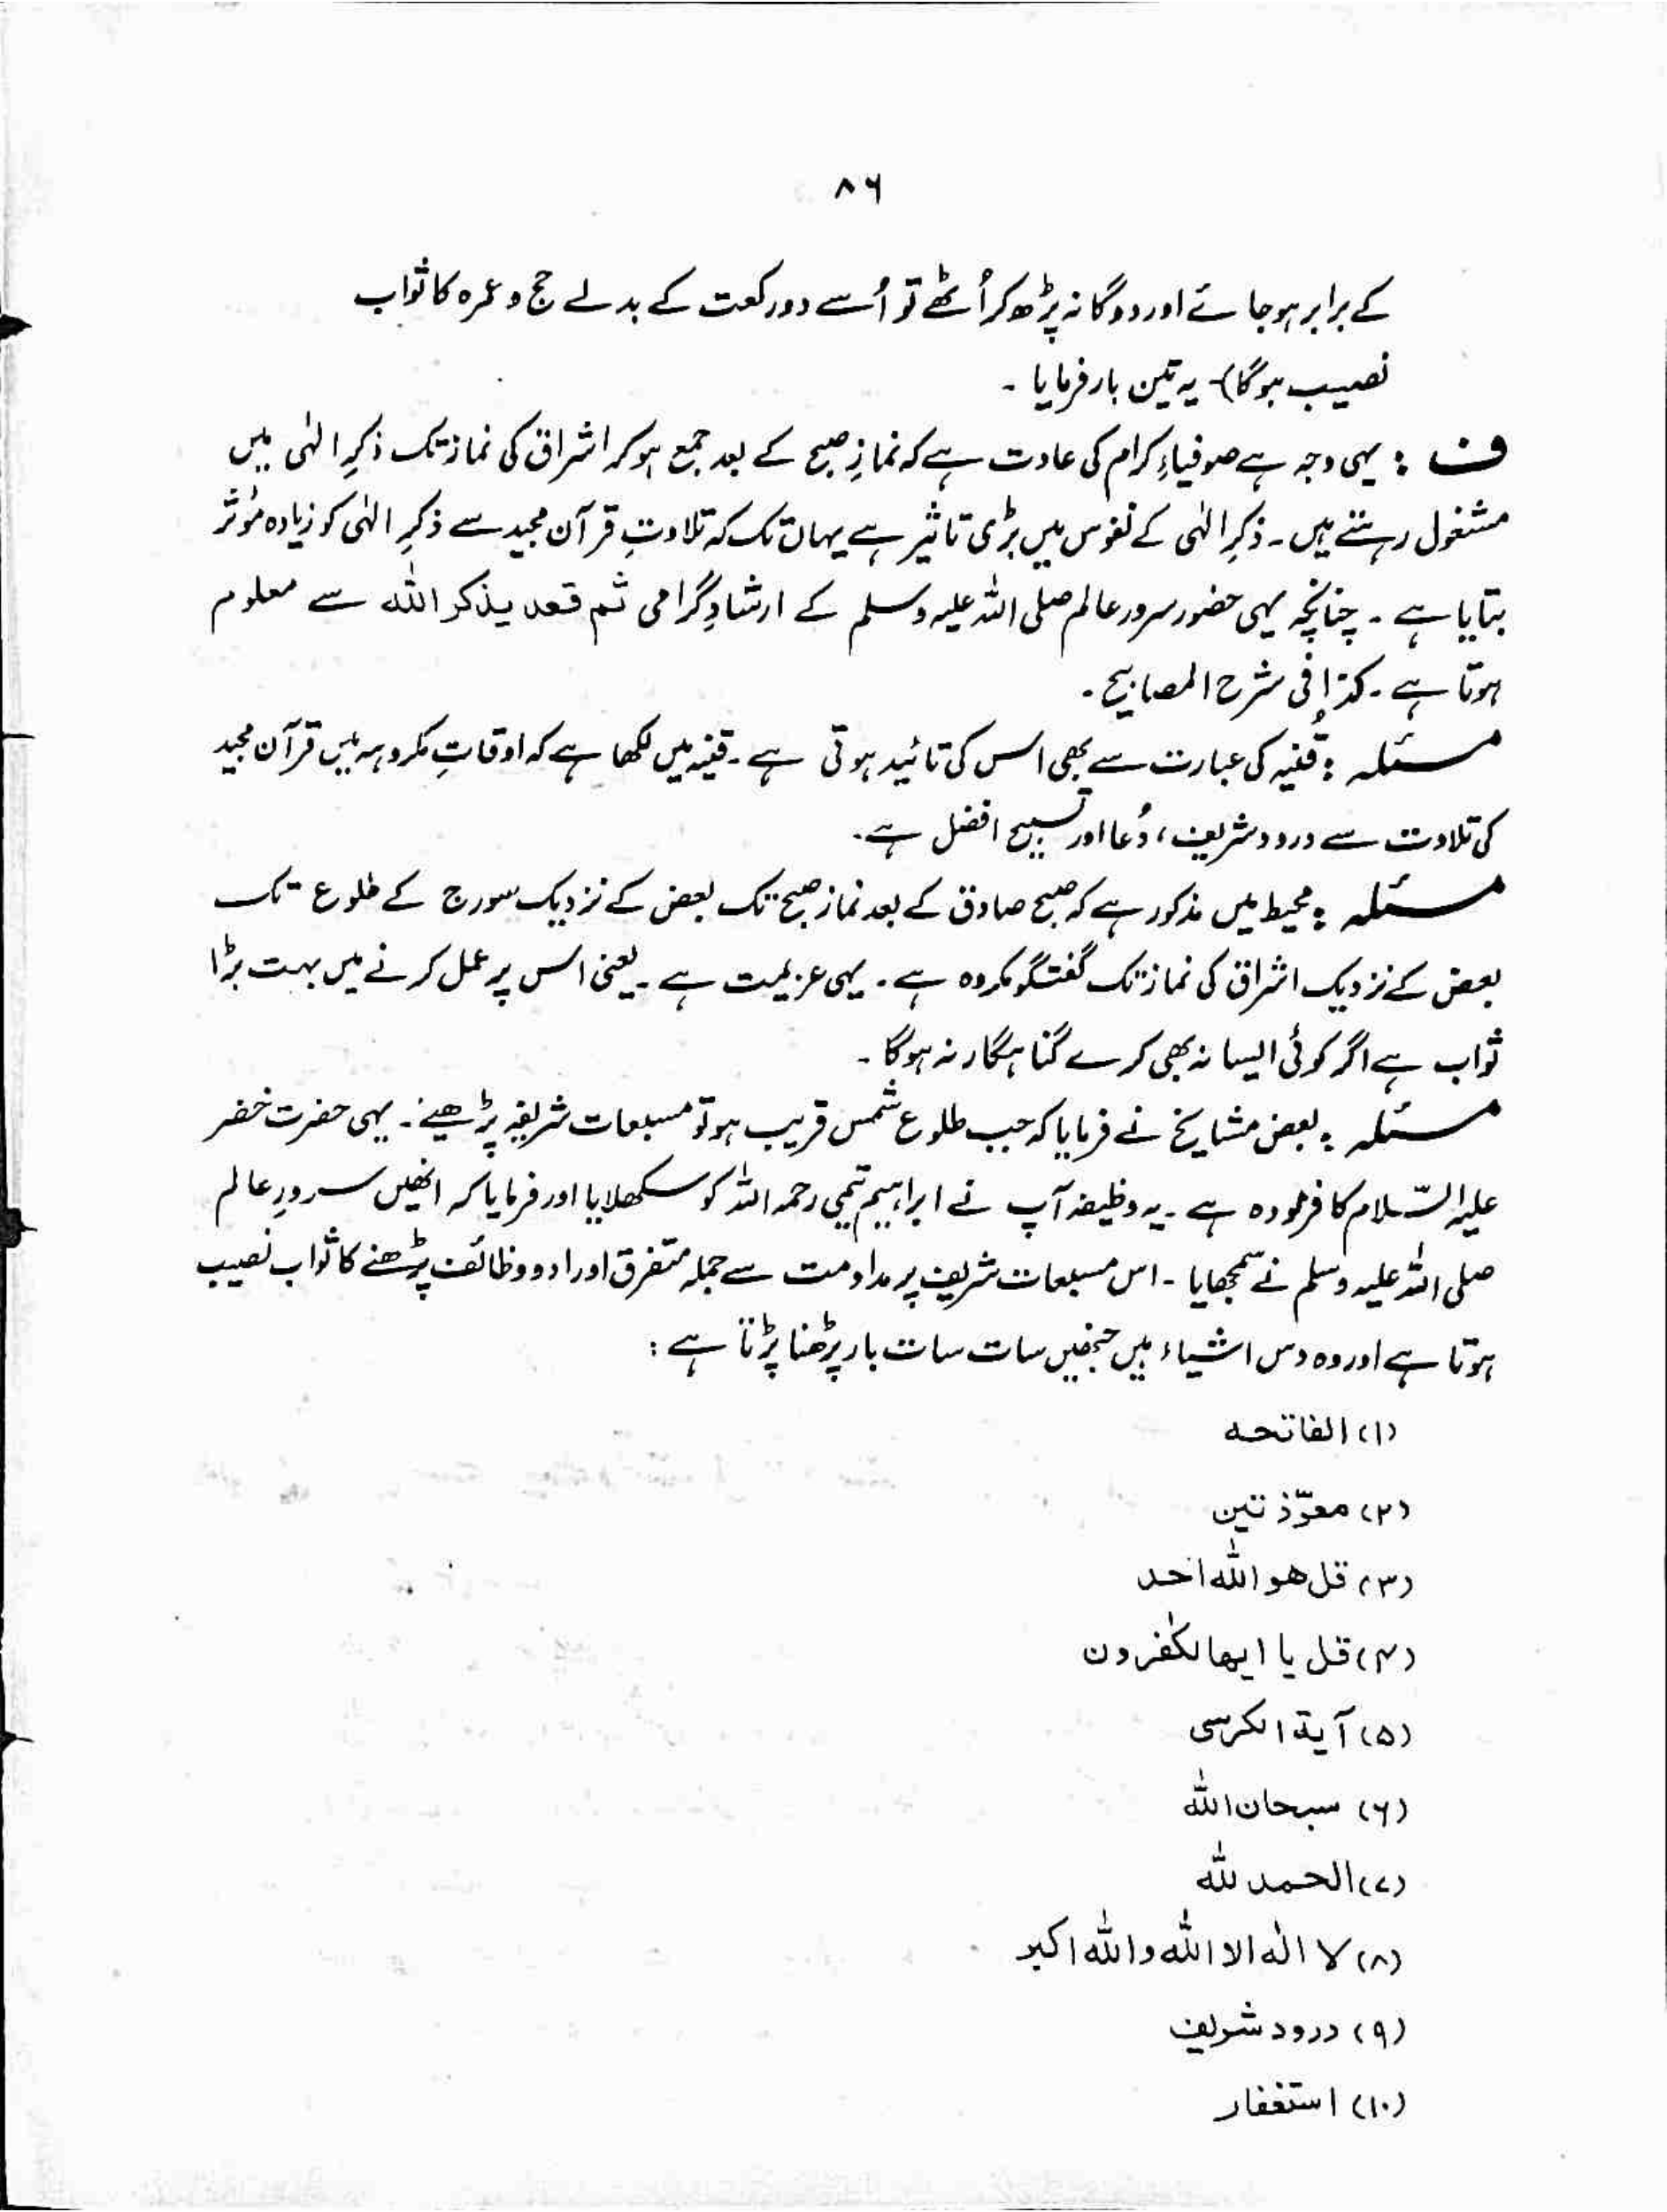 ۸۶
کے برابر ہوجائے اور دوگانہ پڑھ کر اُٹھے تو اُسے دو رکعت کے بدلے حج و عمرہ کا ثواب
نصیب ہوگا)۔ یہ تین بار فرمایا ۔
ف : یہی وجہ ہے صوفیاءِ کرام کی عادت ہے کہ نمازِ صبح کے بعد جمع ہو کر اشراق کی نماز تک ذکرِ الٰہی میں
مشغول رہتے ہیں۔ ذکرِ الٰہی کے نفوس میں بڑی تاثیر ہے یہاں تک کہ تلاوتِ قرآن مجید سے ذکرِ الٰہی کو زیادہ مؤثر
بتایا ہے ۔ چنانچہ یہی حضور سرور عالم صلی اللہ علیہ وسلم کے ارشادِ گرامی ثم قعد یذکر اللہ سے معلوم
ہوتا ہے ۔ کذا فی شرح المصابیح ۔
مسئلہ : قُنیہ کی عبارت سے بھی اس کی تائید ہوتی ہے ۔ قنیہ میں لکھا ہے کہ اوقاتِ مکروہہ میں قرآن مجید
کی تلاوت سے درود شریف ، دُعا اور تسبیح افضل ہے ۔
مسئلہ : محیط میں مذکور ہے کہ صبح صادق کے بعد نماز صبح تک بعض کے نزدیک سورج کے طلوع تک
بعض کے نزدیک اشراق کی نماز تک گفتگو مکروہ ہے ۔ یہی عزیمت ہے ۔ یعنی اس پر عمل کرنے میں بہت بڑا
ثواب ہے اگر کوئی ایسا نہ بھی کرے گنا ہگار نہ ہوگا ۔
مسئلہ : بعض مشایخ نے فرمایا کہ جب طلوع شمس قریب ہو تو مسبعات شریفہ پڑھیے ۔ یہی حضرت خضر
علیہ السّلام کا فرمودہ ہے ۔ یہ وظیفہ آپ نے ابراہیم تیمی رحمہ اللہ کو سکھلایا اور فرمایا کہ انھیں سرورِ عالم
صلی اللہ علیہ وسلم نے سمجھایا ۔ اس مسبعات شریف پر مداومت سے جملہ متفرق اوراد و وظائف پڑھنے کا ثواب نصیب
ہوتا ہے اور وہ دس اشیاء ہیں جنھیں سات سات بار پڑھنا پڑتا ہے :
(۱) الفاتحہ
(۲) معوّذتین
(۳) قل ھو اللہ احد
(۴) قل یا ایھا لکٰفرون
(۵) آیۃ الکرسی
(۶) سبحان اللہ
(۷) الحمد للہ
(۸) لا الٰہ الا اللہ واللہ اکبر
(۹) درود شریف
(۱۰) استغفار